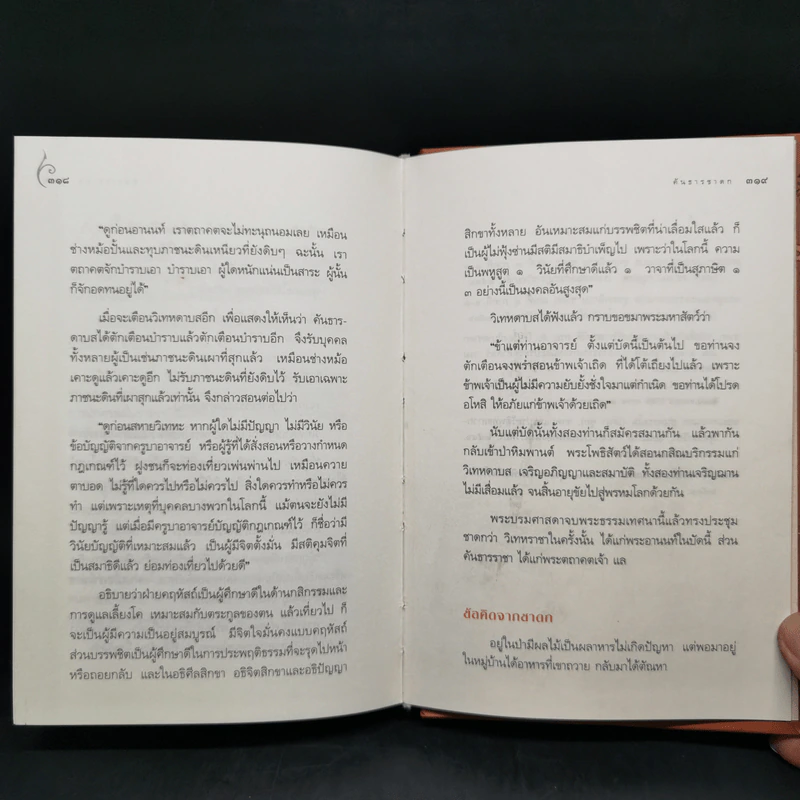 ๓๑๘
“ดูก่อนอานนท์ เราตถาคตจะไม่ทะนุถนอมเลย เหมือน
ช่างหม้อปั้นและทุบภาชนะดินเหนียวที่ยังดิบๆ ฉะนั้น เรา
ตถาคตจักบำราบเอา บำราบเอา ผู้ใดหนักแน่นเป็นสาระ ผู้นั้น
ก็จักอดทนอยู่ได้”
เมื่อจะเตือนวิเทหดาบสอีก เพื่อแสดงให้เห็นว่า คันธาร-
ดาบสได้ตักเตือนบำราบแล้วตักเตือนบำราบอีก จึงรับบุคคล
ทั้งหลายผู้เป็นเช่นภาชนะดินเผาที่สุกแล้ว เหมือนช่างหม้อ
เคาะดูแล้วเคาะดูอีก ไม่รับภาชนะดินที่ยังดิบไว้ รับเอาเฉพาะ
ภาชนะดินที่เผาสุกแล้วเท่านั้น จึงกล่าวสอนต่อไปว่า
“ดูก่อนสหายวิเทหะ หากผู้ใดไม่มีปัญญา ไม่มีวินัย หรือ
ข้อบัญญัติจากครูบาอาจารย์ หรือผู้รู้ที่ได้สั่งสอนหรือวางกำหนด
กฎเกณฑ์ไว้ ฝูงชนก็จะท่องเที่ยวเพ่นพ่านไป เหมือนควาย
ตาบอด ไม่รู้ที่ใดควรไปหรือไม่ควรไป สิ่งใดควรทำหรือไม่ควร
ทำ แต่เพราะเหตุที่บุคคลบางพวกในโลกนี้ แม้ตนจะยังไม่มี
ปัญญารู้ แต่เมื่อมีครูบาอาจารย์บัญญัติกฎเกณฑ์ไว้ ก็ชื่อว่ามี
วินัยบัญญัติที่เหมาะสมแล้ว เป็นผู้มีจิตตั้งมั่น มีสติคุมจิตที่
เป็นสมาธิดีแล้ว ย่อมท่องเที่ยวไปด้วยดี”
อธิบายว่าฝ่ายคฤหัสถ์เป็นผู้ศึกษาดีในด้านกสิกรรมและ
การดูแลเลี้ยงโค เหมาะสมกับตระกูลของตน แล้วเที่ยวไป ก็
จะเป็นผู้มีความเป็นอยู่สมบูรณ์ มีจิตใจมั่นคงแบบคฤหัสถ์
ส่วนบรรพชิตเป็นผู้ศึกษาดีในการประพฤติธรรมที่จะรุดไปหน้า
หรือถอยกลับ และในอธิศีลสิกขา อธิจิตสิกขาและอธิปัญญา
คันธารชาดก ๓๑๙
สิกขาทั้งหลาย อันเหมาะสมแก่บรรพชิตที่น่าเลื่อมใสแล้ว ก็
เป็นผู้ไม่ฟุ้งซ่านมีสติมีสมาธิบำเพ็ญไป เพราะว่าในโลกนี้ ความ
เป็นพหูสูต ๑ วินัยที่ศึกษาดีแล้ว ๑ วาจาที่เป็นสุภาษิต ๑
๓ อย่างนี้เป็นมงคลอันสูงสุด”
วิเทหดาบสได้ฟังแล้ว กราบขอขมาพระมหาสัตว์ว่า
“ข้าแต่ท่านอาจารย์ ตั้งแต่บัดนี้เป็นต้นไป ขอท่านจง
ตักเตือนจงพร่ำสอนข้าพเจ้าเถิด ที่ได้โต้เถียงไปแล้ว เพราะ
ข้าพเจ้าเป็นผู้ไม่มีความยับยั้งชั่งใจมาแต่กำเนิด ขอท่านได้โปรด
อโหสิ ให้อภัยแก่ข้าพเจ้าด้วยเถิด”
นับแต่บัดนั้นทั้งสองท่านก็สมัครสมานกัน แล้วพากัน
กลับเข้าป่าหิมพานต์ พระโพธิสัตว์ได้สอนกสิณบริกรรมแก่
วิเทหดาบส เจริญอภิญญาและสมาบัติ ทั้งสองท่านเจริญฌาน
ไม่มีเสื่อมแล้ว จนสิ้นอายุขัยไปสู่พรหมโลกด้วยกัน
พระบรมศาสดาจบพระธรรมเทศนานี้แล้วทรงประชุม
ชาดกว่า วิเทหราชาในครั้งนั้น ได้แก่พระอานนท์ในบัดนี้ ส่วน
คันธารราชา ได้แก่พระตถาคตเจ้า แล
ข้อคิดจากชาดก
อยู่ในป่ามีผลไม้เป็นผลาหารไม่เกิดปัญหา แต่พอมาอยู่
ในหมู่บ้านได้อาหารที่เขาถวาย กลับมาได้ตัณหา